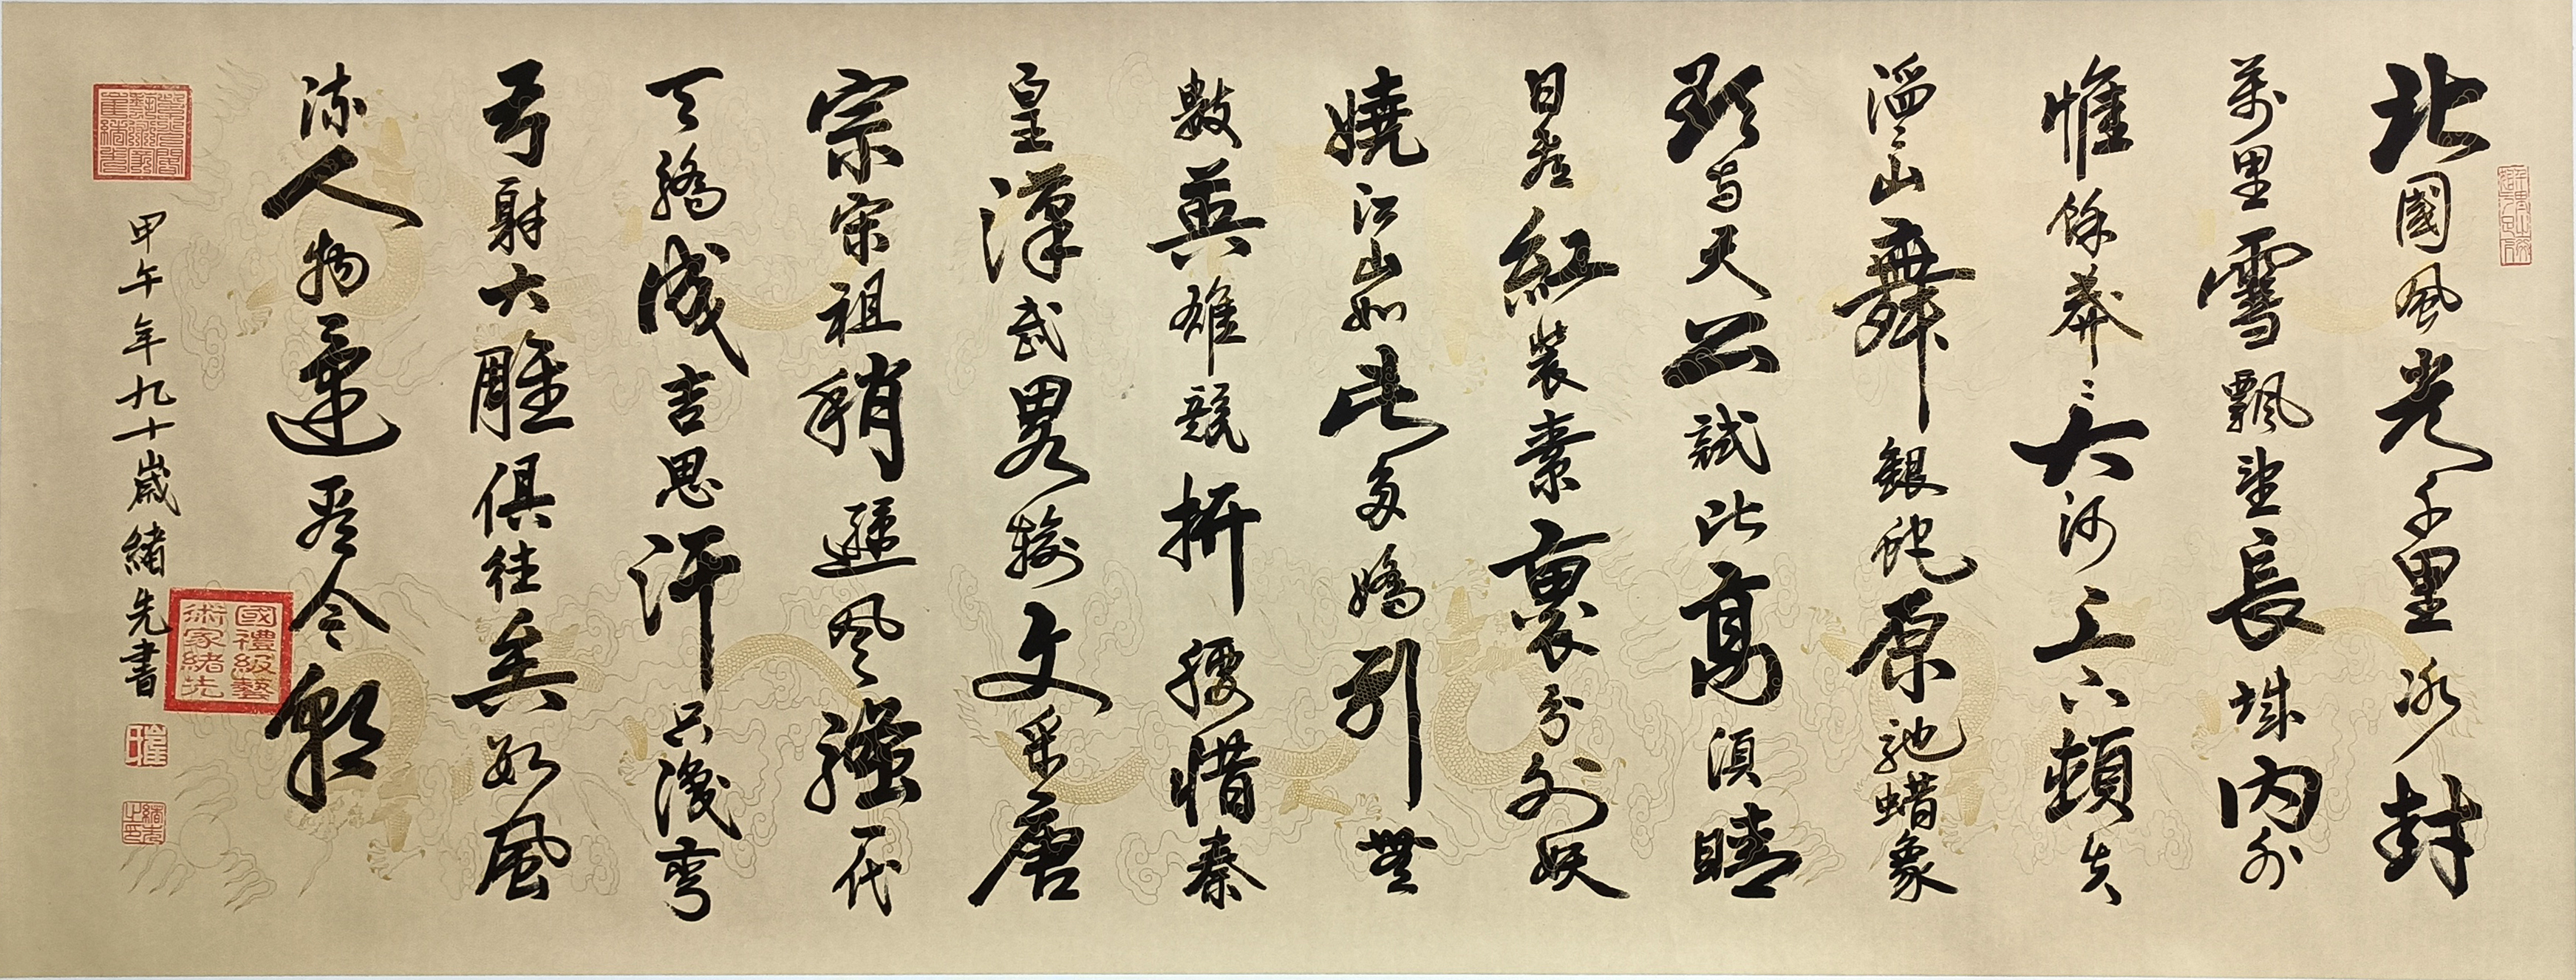 北國風光千里冰封
萬里雪飄望長城內外
惟餘莽〻大河上下頓失
滔〻山舞銀蛇原馳蜡象
欲与天公試比高須晴
日看紅裝素裹分外妖
嬈江山如此多嬌引無
數英雄競折腰惜秦
皇漢武畧輸文采唐
宗宋祖稍遜風騷一代
天驕成吉思汗只識彎
弓射大雕俱往矣數風
流人物還看今朝
甲午年九十歲緒先書
國禮級藝術家緒先
崔
緒先之印